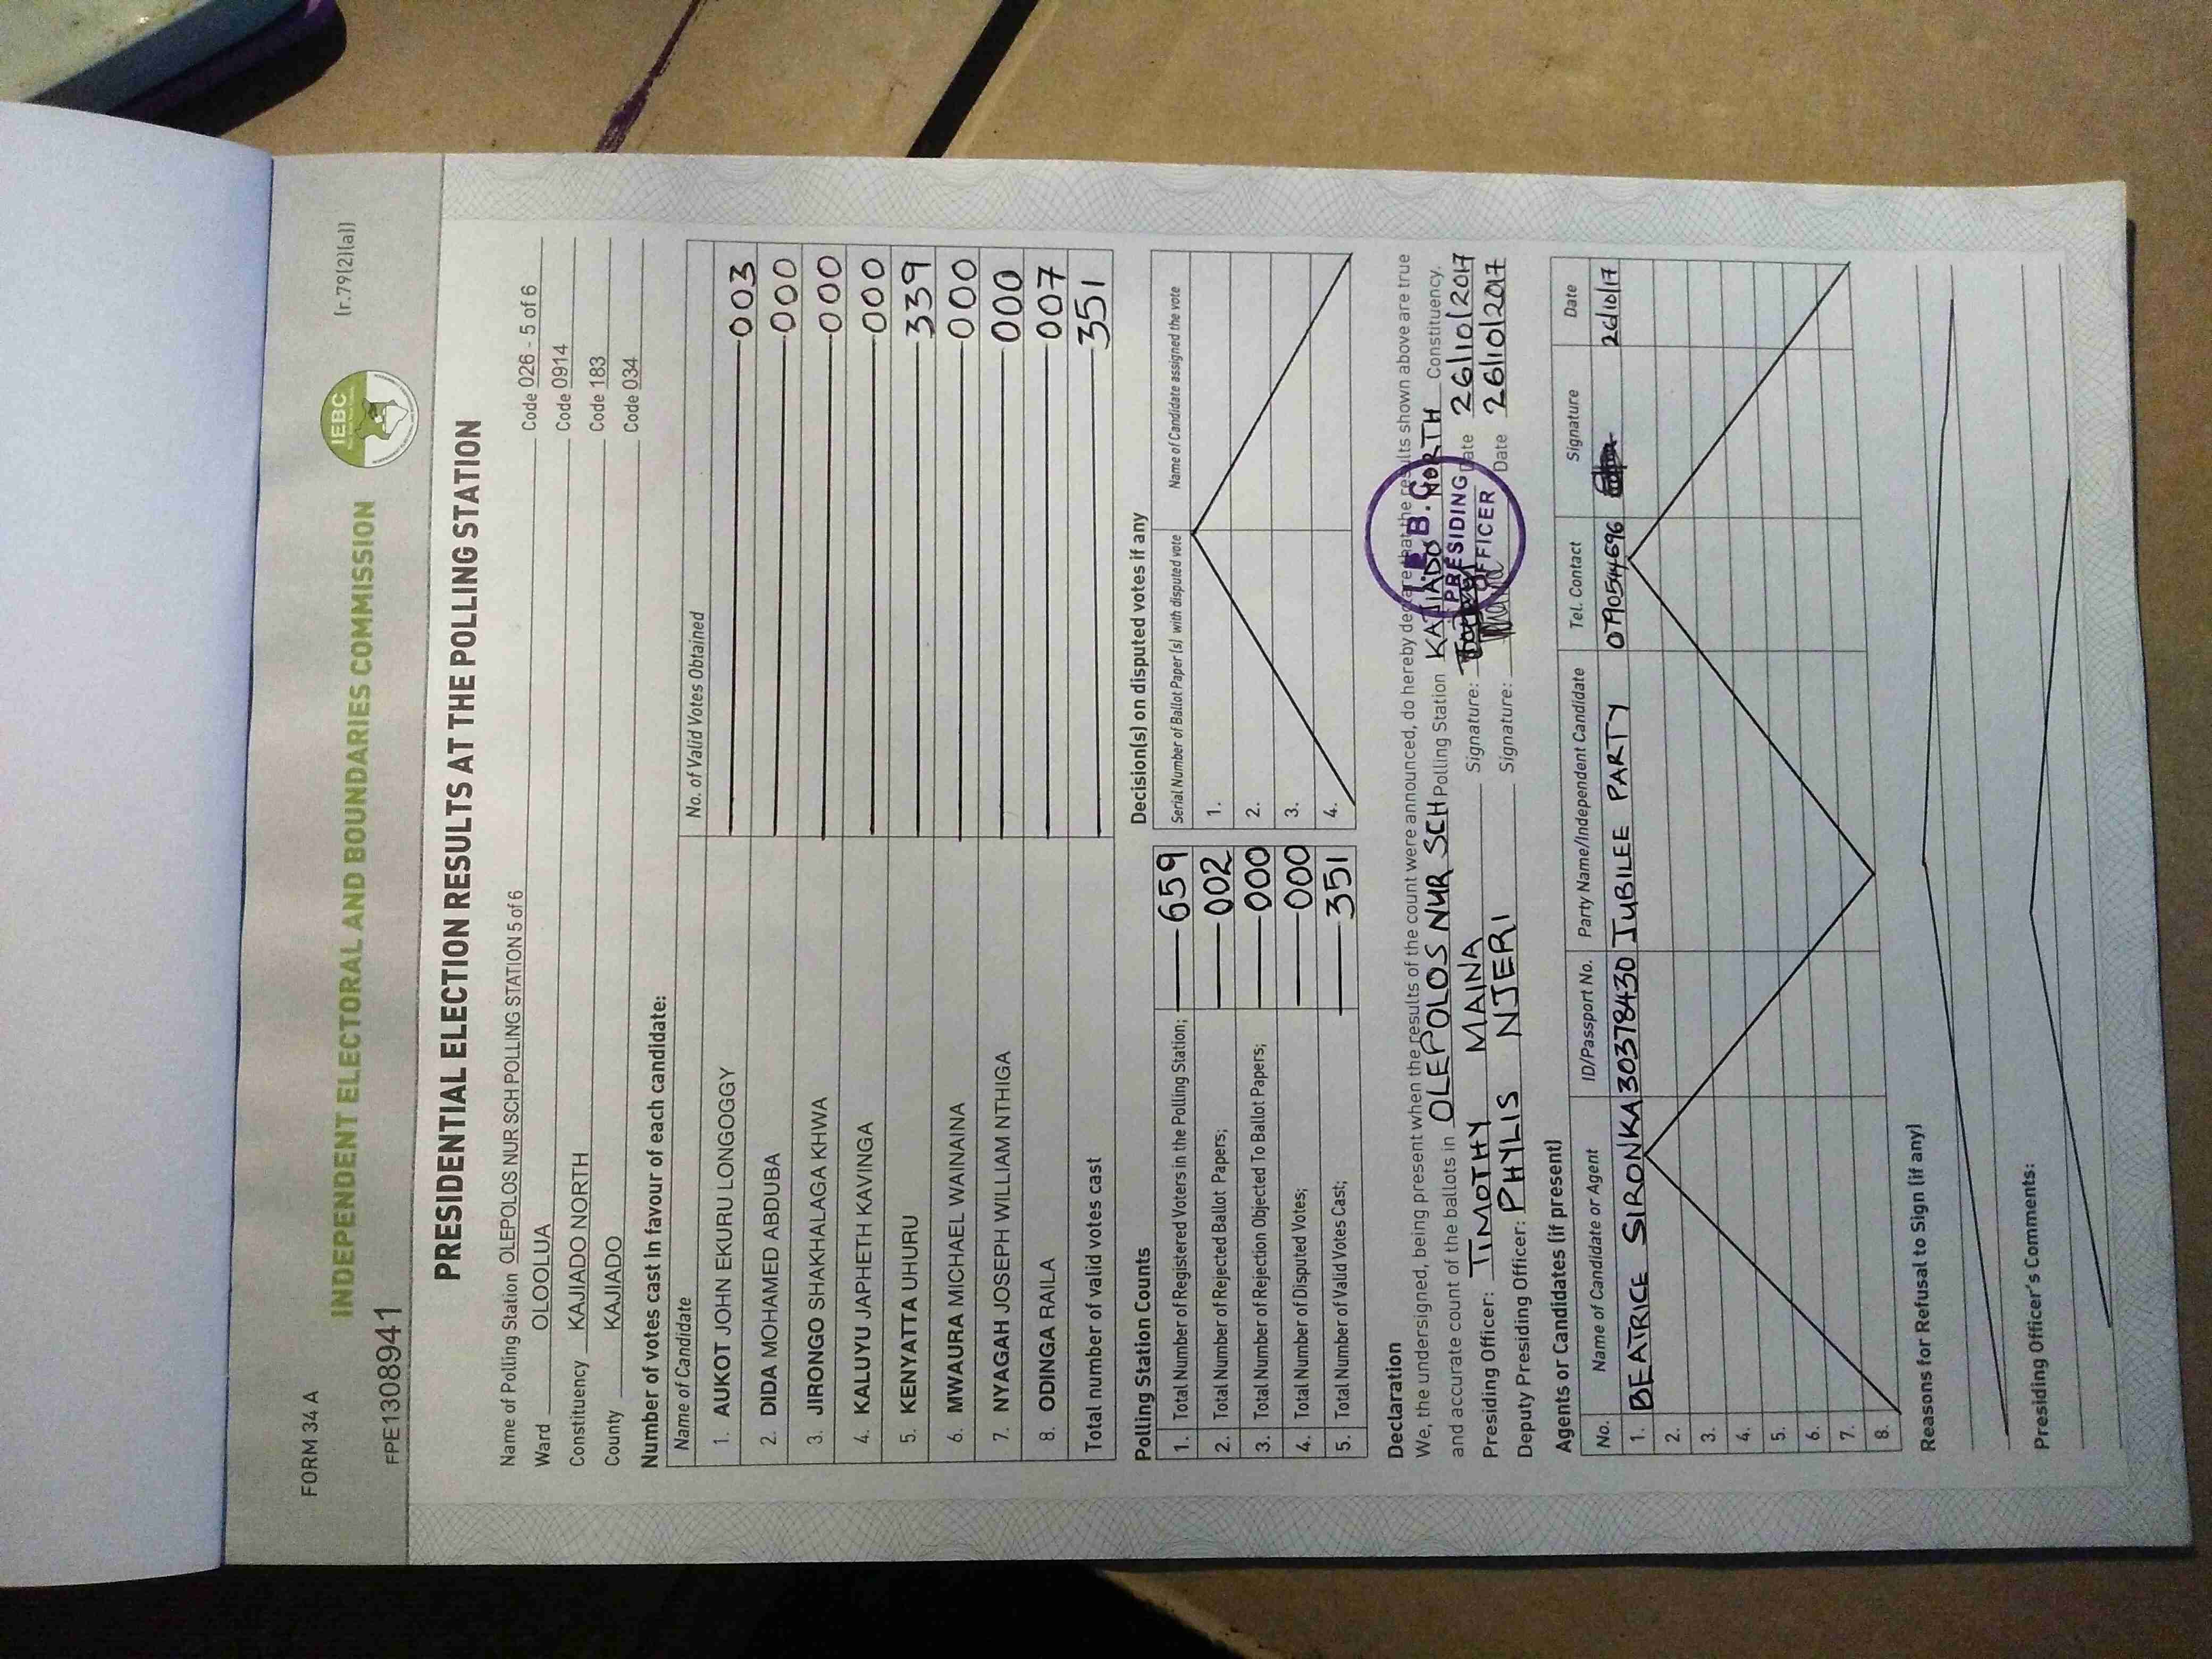 FORM 34 A
(r.79(2)(a))
IEBC
INDEPENDENT ELECTORAL AND BOUNDARIES COMMISSION
FPE1308941
PRESIDENTIAL ELECTION RESULTS AT THE POLLING STATION
Name of Polling Station OLEPOLOS NUR SCH POLLING STATION 5 of 6 Code 026 - 5 of 6
Ward OLOOLUA Code 0914
Constituency KAJIADO NORTH Code 183
County KAJIADO Code 034
Number of votes cast in favour of each candidate:
Name of Candidate No. of Valid Votes Obtained
1. AUKOT JOHN EKURU LONGOGGY 003
2. DIDA MOHAMED ABDUBA 000
3. JIRONGO SHAKHALAGA KHWA 000
4. KALUYU JAPHETH KAVINGA 000
5. KENYATTA UHURU 339
6. MWAURA MICHAEL WAINAINA 000
7. NYAGAH JOSEPH WILLIAM NTHIGA 000
8. ODINGA RAILA 007
Total number of valid votes cast 351
Polling Station Counts
1. Total Number of Registered Voters in the Polling Station; 659
2. Total Number of Rejected Ballot Papers; 002
3. Total Number of Rejection Objected To Ballot Papers; 000
4. Total Number of Disputed Votes; 000
5. Total Number of Valid Votes Cast; 351
Decision(s) on disputed votes if any
Serial Number of Ballot Paper (s) with disputed vote Name of Candidate assigned the vote
1.
2.
3.
4.
Declaration
We, the undersigned, being present when the results of the count were announced, do hereby declare that the results shown above are true
and accurate count of the ballots in OLEPOLOS NUR SCH Polling Station KAJIADO NORTH Constituency.
Presiding Officer: TIMOTHY MAINA Signature: Date 26/10/2017
Deputy Presiding Officer: PHYLIS NJERI Signature: Date 26/10/2017
I.E.B.C.
PRESIDING
OFFICER
Agents or Candidates (if present)
No. Name of Candidate or Agent ID/Passport No. Party Name/Independent Candidate Tel. Contact Signature Date
1. BEATRICE SIRONKA 30378430 JUBILEE PARTY 0790544696 26/10/17
2.
3.
4.
5.
6.
7.
8.
Reasons for Refusal to Sign (if any)
Presiding Officer's Comments: